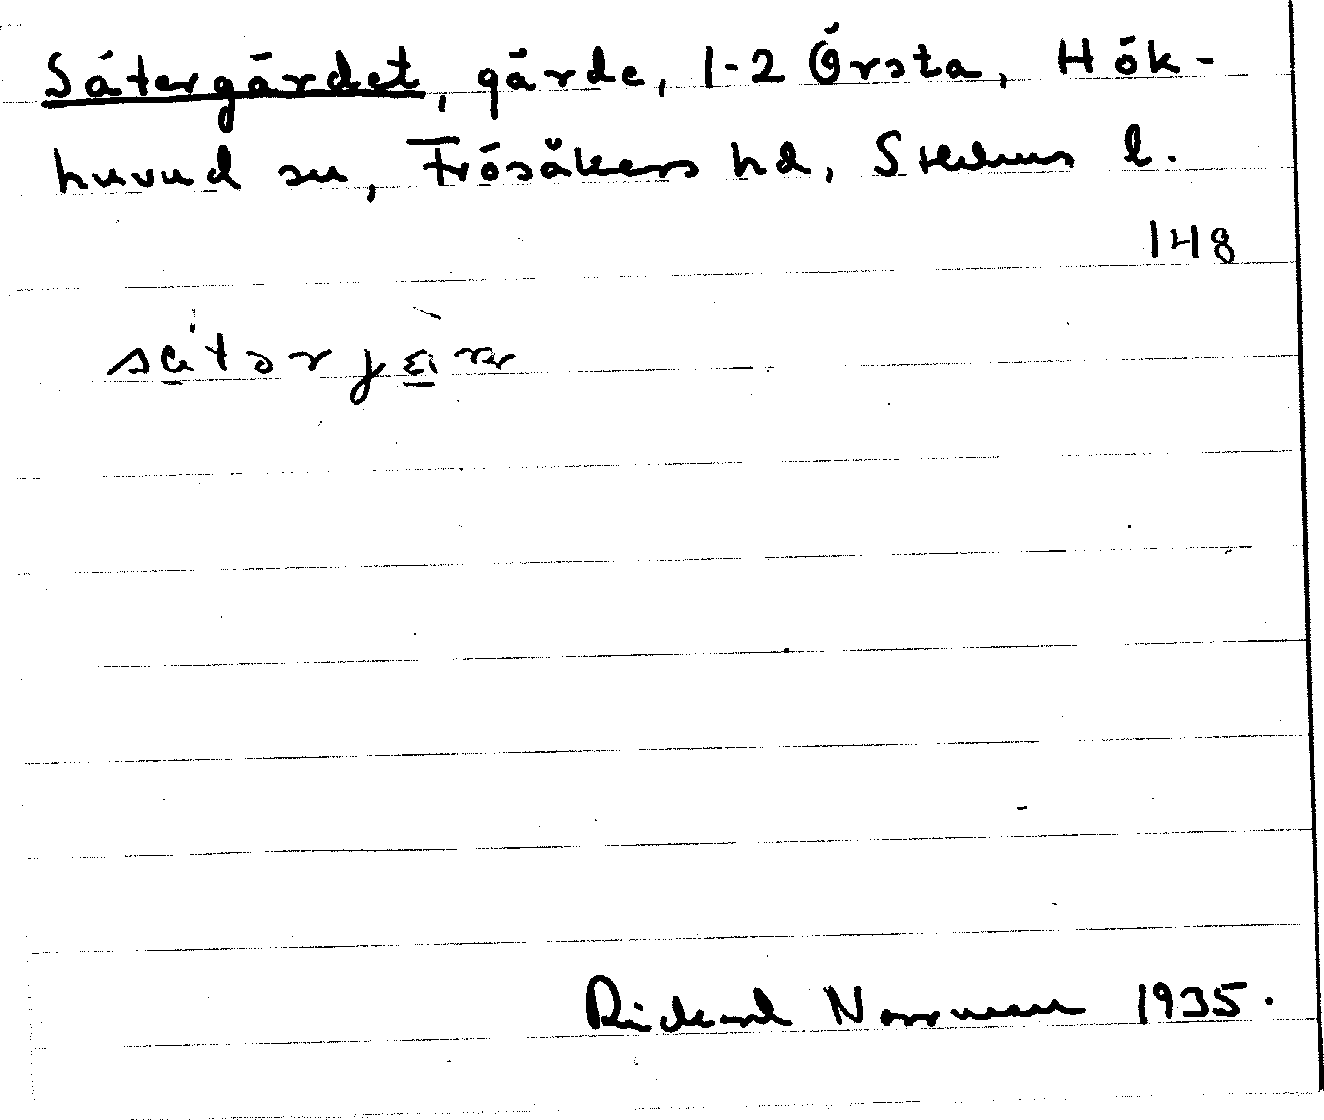 Sätergärdet, gärde, 1-2 Örsta, Hök-
huvud sn, Frösåkers hd, Sthlms l.
148
Rickard Norrman 1935.